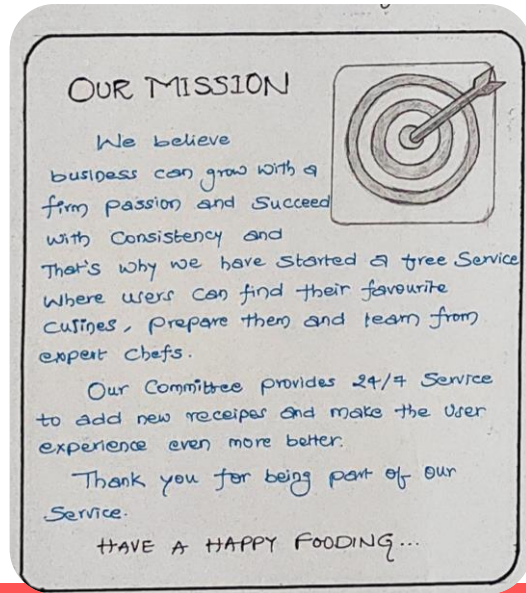 OUR MISSION
We believe
business can grow with a
firm passion and Succeed
with Consistency and
That's why we have started a free Service
Where users can find their favourite
Cusines, prepare them and learn from
expert Chefs.
Our Committee provides 24/7 Service
to add new receipes and make the User
experience even more better.
Thank you for being part of our
Service.
HAVE A HAPPY FOODING...